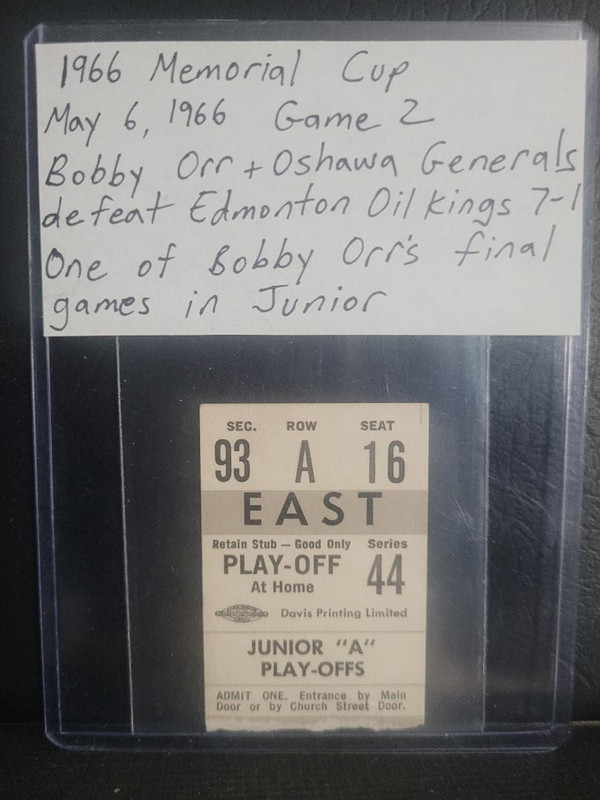 1966 Memorial Cup
May 6, 1966 Game 2
Bobby Orr + Oshawa Generals
defeat Edmonton Oil Kings 7-1
One of Bobby Orr's final
games in Junior
SEC. ROW SEAT
93 A 16
EAST
Retain Stub — Good Only Series
PLAY-OFF 44
At Home
Davis Printing Limited
JUNIOR "A"
PLAY-OFFS
ADMIT ONE. Entrance by Main
Door or by Church Street Door.